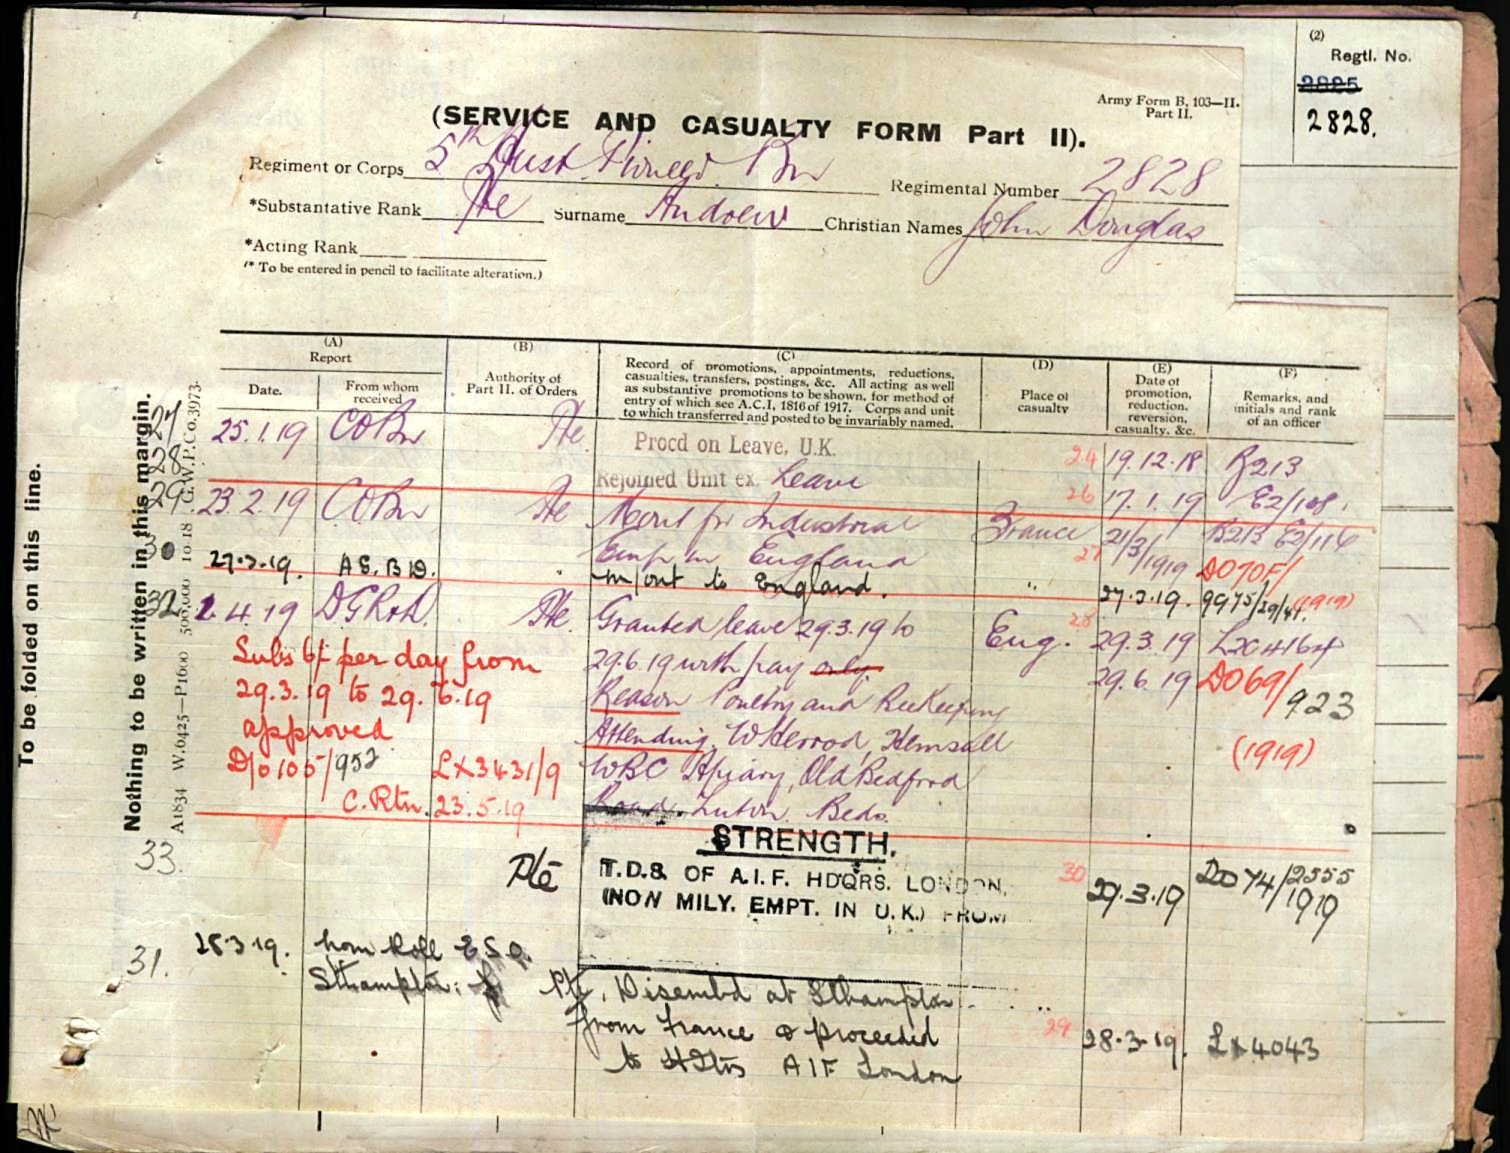 (2)
Regtl. No.
2825
2828.
Army Form B, 103—II.
Part II.
(SERVICE AND CASUALTY FORM Part II).
Regiment or Corps 5th Aust Pioneer Bn Regimental Number 2828
*Substantative Rank Pte Surname Andrew Christian Names John Douglas
*Acting Rank
(* To be entered in pencil to facilitate alteration.)
To be folded on this line.
Nothing to be written in this margin.
A1834 W.0425—P1600 500,000 10-18 G.W.P.Co.3973.
(A)
Report
Date.
From whom
received
(B)
Authority of
Part II. of Orders
(C)
Record of promotions, appointments, reductions,
casualties, transfers, postings, &c. All acting as well
as substantive promotions to be shown, for method of
entry of which see A.C.I, 1816 of 1917. Corps and unit
to which transferred and posted to be invariably named.
(D)
Place of
casualty
(E)
Date of
promotion,
reduction,
reversion,
casualty. &c.
(F)
Remarks, and
initials and rank
of an officer
27 25.1.19 COBn Pte Procd on Leave, U.K. 24 19.12.18 B213
28 Rejoined Unit ex Leave 26 17.1.19 E2/108.
29 23.2.19 COBn Pte Mout for Industrial France 21/3/1919 B213 E2/116
30 Emp in England 27 DO70F/
27.3.19. A.E.B.D. " m/out to England. " 27.3.19. 9975/29/4. (1919)
32 2.4.19 DGR&D. Pte Granted leave 29.3.19 to Eng. 28 29.3.19 LX04164
Subs 6/- per day from 29.6.19 with pay only 29.6.19 DO69/923
29.3.19 to 29.6.19 Reason Poultry and BeeKeeping
approved Attending. W Herrod, Hemsall (1919)
D/o 105/952 LX3431/9 WBC Apiary, Old Bedford
C.Rtn. 23.5.19 Road. Luton. Beds.
STRENGTH.
33. Pte T.D.8. OF A.I.F. HDQRS. LONDON, 30 29.3.19 DO74/2555/1919
(NON MILY. EMPT. IN U.K.) FROM
31. 28.3.19. nom Roll E.S.O.
Sthampton: Pte, Disembd at Sthampton
from France & proceeded 29 28.3.19. LX4043
to Hdqtrs AIF London